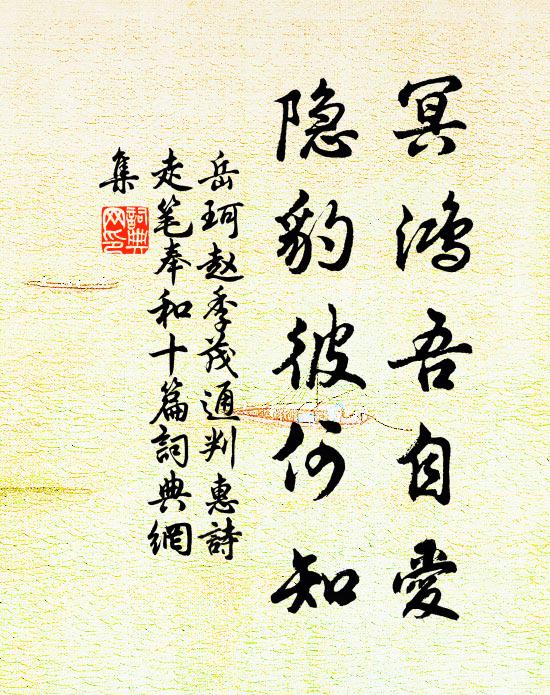 冥鸿吾自愛
隐豹彼何知
岳珂赵季茂通判惠詩
走笔奉和十篇詞典網
集
詞典网印